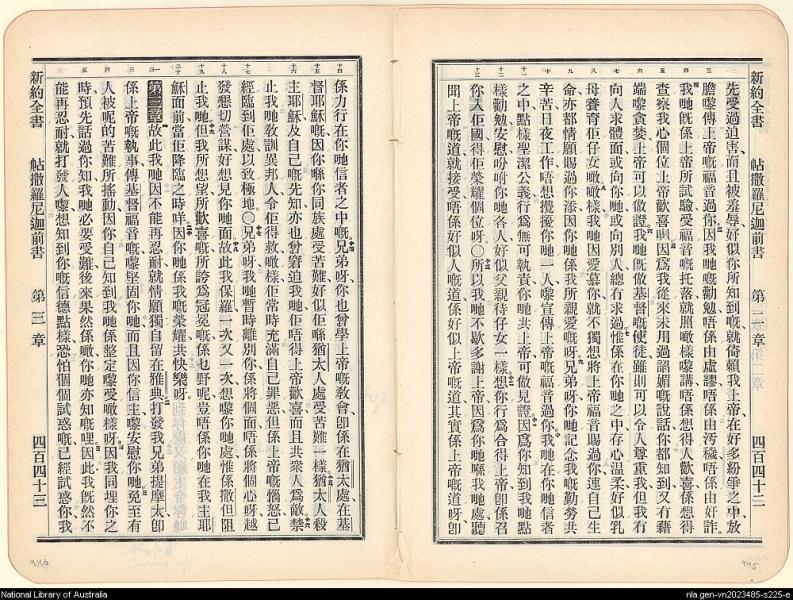 新約全書 帖撒羅尼迦前書 第二章 四百四十二
先受過迫害而且被羞辱好似你所知到嘅就倚賴我上帝在好多紛爭之中放
膽嚟傳上帝嘅福音過你因我哋嘅勸勉唔係由虛謬唔係由汚穢唔係由奸詐
我哋既係上帝所試驗受福音嘅托落就照噉樣嚟講唔係想得人歡喜係想得
查察我心個位上帝歡喜唄因爲我從來未用過諂媚嘅說話你都知到又冇藉
端嚟貪婪上帝可以做證我哋既做基督嘅使徒雖則可以令人尊重我但我冇
向人求體面或向你哋或向別人總冇求過惟係在你哋之中存心温柔好似乳
母養育佢仔女噉噉樣我哋因愛慕你就不獨想將上帝福音賜過你連自己生
命亦都情願賜過你添因你哋係我所親愛嘅呀兄弟呀你哋記念我嘅勤勞共
辛苦日夜工作唔想攪擾你哋一人嚟宣傳上帝嘅福音過你我哋在你哋信者
之中點樣聖潔公義行爲無可執責你哋共上帝可做見證因爲你知到我哋點
樣勸勉安慰吩咐你哋各人好似父親待仔女一樣想你行爲合得上帝卽係召
你入佢國得佢榮耀個位呀○所以我哋不歇多謝上帝因爲你哋喺我哋處聽
聞上帝嘅道就接受唔係好似人嘅道係好似上帝嘅道其實係上帝嘅道呀卽
係力行在你哋信者之中嘅兄弟呀你也曾學上帝嘅教會卽係在猶太處在基
督耶穌嘅因你喺你同族處受苦難好似佢喺猶太人處受苦難一樣猶太人殺
主耶穌及自己嘅先知亦也曾窘迫我哋佢唔得上帝歡喜而且共衆人爲敵禁
止我哋教訓異邦人令佢得救噉樣佢常時充滿自己罪惡但係上帝嘅惱怒已
經臨到佢處以致極地○兄弟呀我哋暫時離別你係將個面唔係將個心呀越
發懇切當謀好想見你哋面故此我保羅一次又一次想嚟你哋處惟係撒但阻
止我哋但我所想望所歡喜嘅所誇爲冠冕嘅係也野呢豈唔係你哋在我主耶
穌面前當佢降臨之時咩因你哋係我嘅榮耀共快樂呀
第三章故此我哋因不能再忍耐就情願獨自留在雅典打發我兄弟提摩太卽
係上帝嘅執事傳基督福音嘅嚟堅固你哋而且因你信主嚟安慰你哋免至有
人被呢的苦難所搖動因你自己知到我哋係整定嚟受噉樣呀因我同埋你之
時預先話過你知我哋必要受難後來果然係噉你哋亦知嘅哩因此我既然不
能再忍耐就打發人嚟想知到你嘅信德點樣恐怕個個試惑嘅已經試惑你我
新約全書 帖撒羅尼迦前書 第三章 四百四十三
National Library of Australia
nla.gen-vn2023485-s225-e